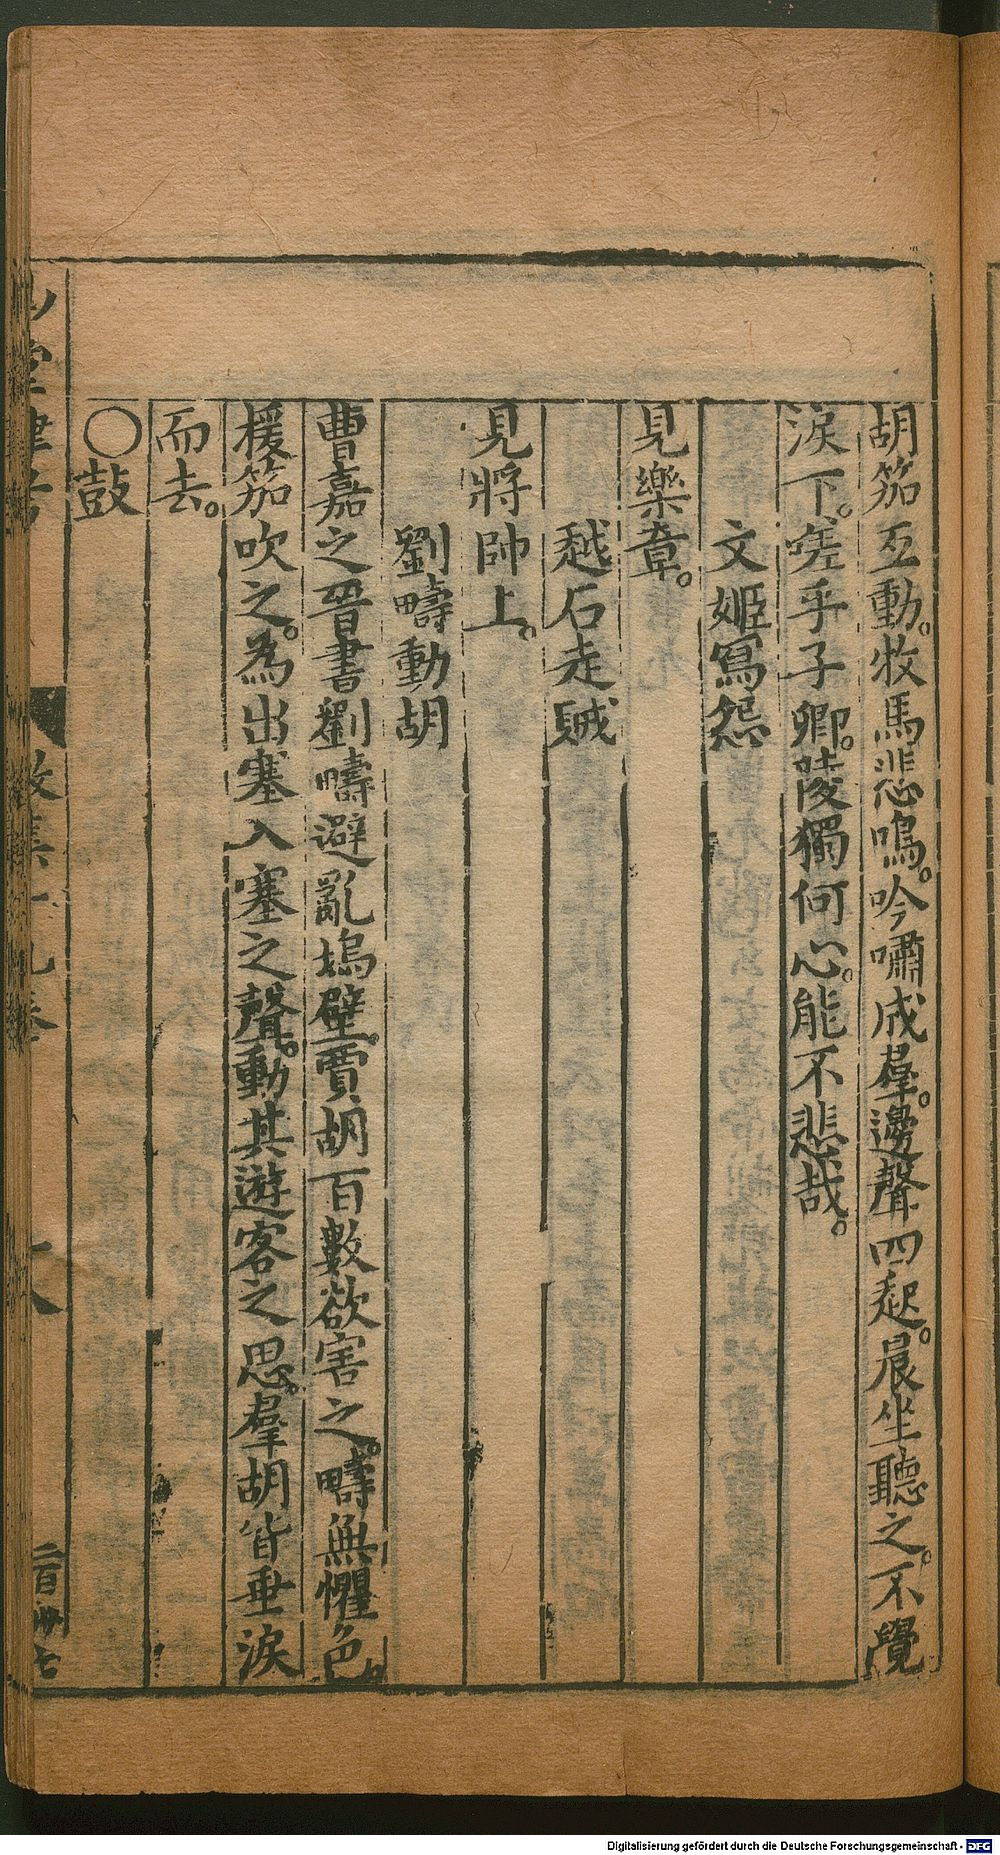 胡笳互動。牧馬悲鳴。吟嘯成羣。邊聲四起。晨坐聽之。不覺
淚下。嗟乎子卿。陵獨何心。能不悲哉。
文姬冩怨
見樂章。
越石走賊
見將帥上。
劉疇動胡
曹嘉之晋書劉疇避亂塢壁。賈胡百數欲害之。疇無懼色。
援笳吹之。為出塞入塞之聲。動其遊客之思。羣胡皆垂淚
而去。
○鼓
山堂肆考
卷
二百卌七
Digitalisierung gefördert durch die Deutsche Forschungsgemeinschaft - DFG